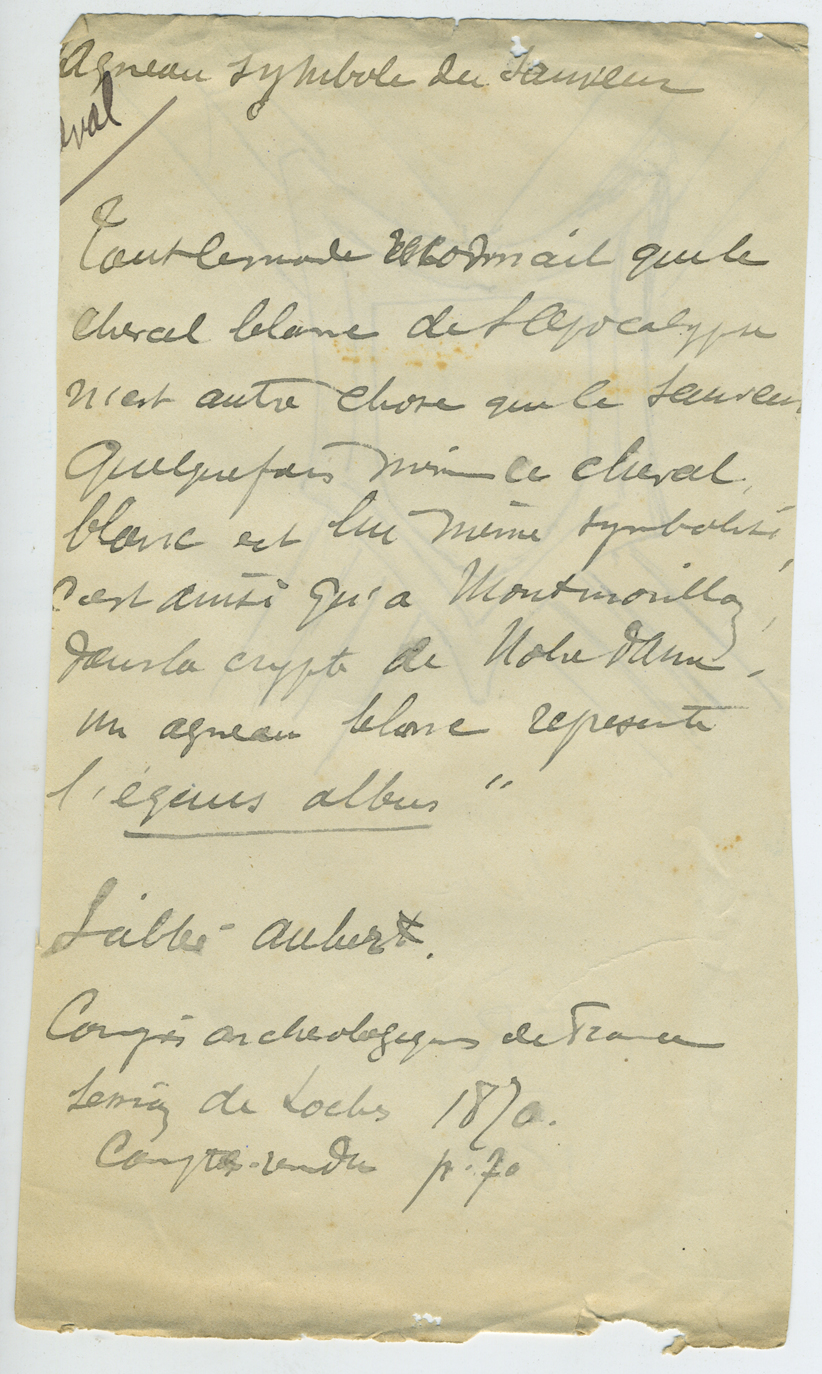 Agneau symbole du Sauveur
Tout le monde sait que le
cheval blanc de l'Apocalypse
n'est autre chose que le Sauveur
Quelquefois même le cheval
blanc est lui même symbolisé,
c'est ainsi qu'a Montmorillon,
dans la crypte de Notre Dame,
un agneau blanc represente
l'équus albus "
L'abbé Aubert.
Congrès archeologiques de France
Session de Loches 1870.
Comptes-rendus p. 70